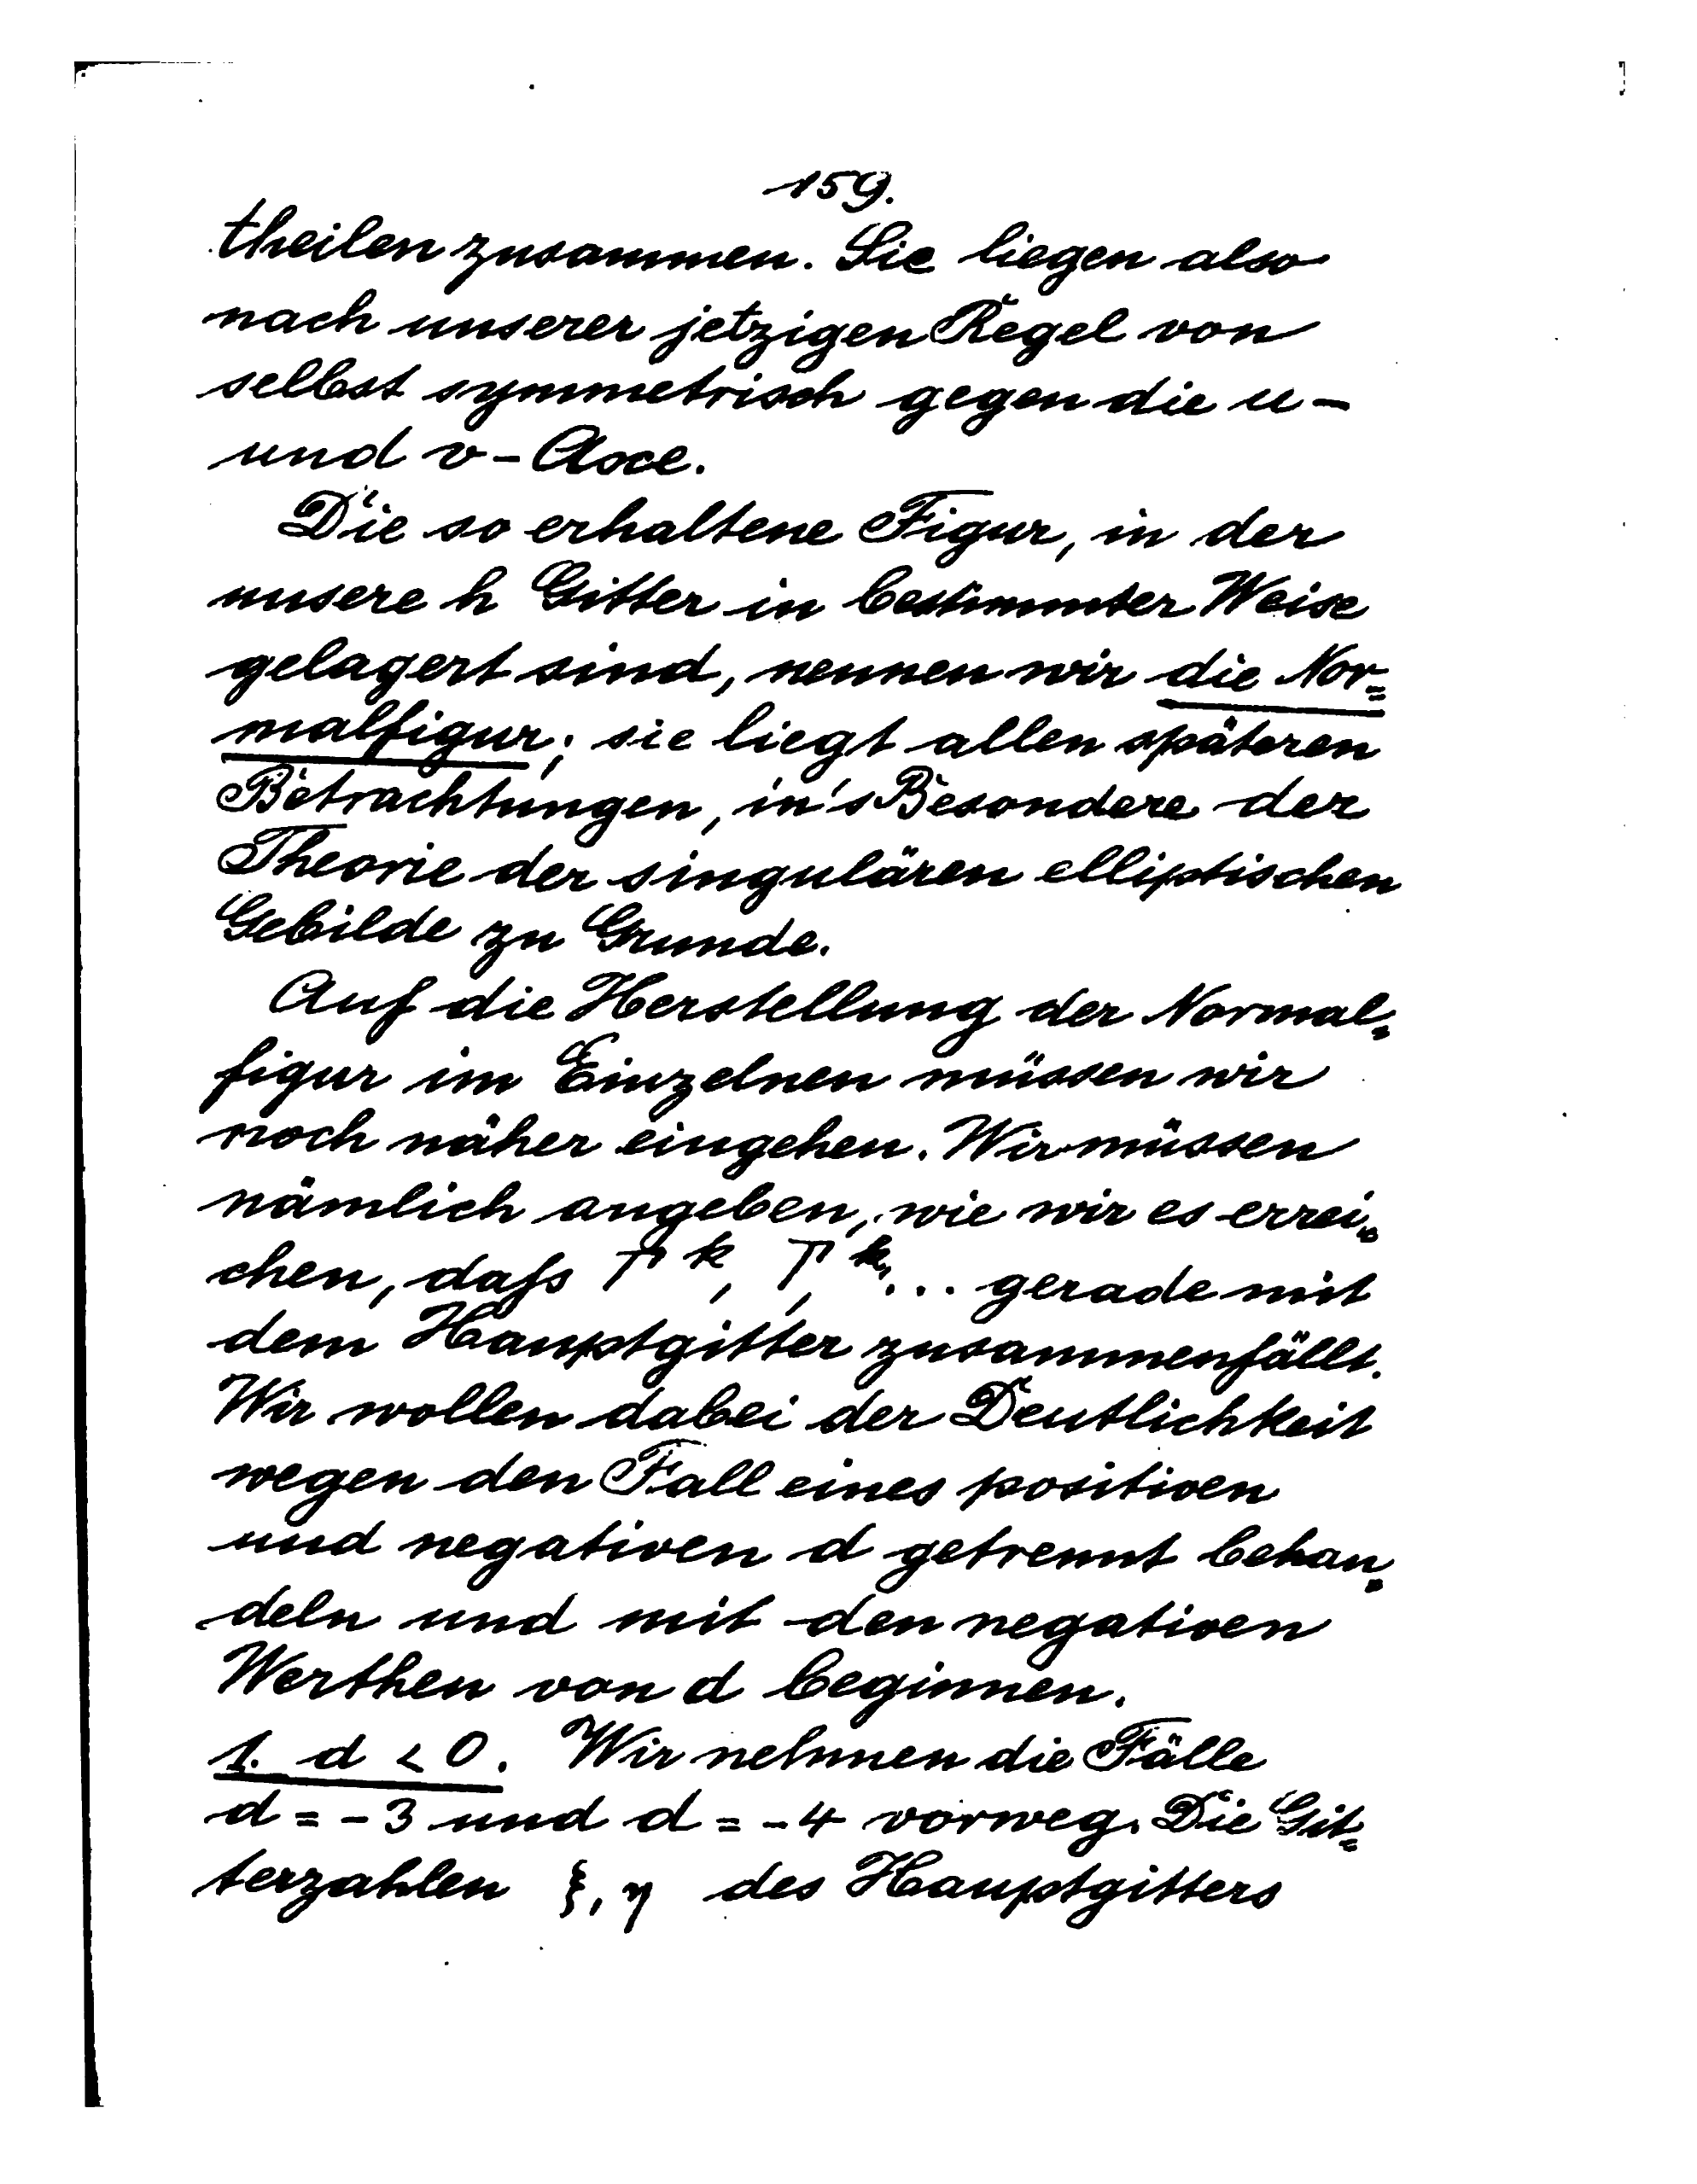 159.
theilen zusammen. Sie liegen also
nach unserer jetzigen Regel von
selbst symmetrisch gegen die u-
und v-Axe.
Die so erhaltene Figur, in der
unsere h Gitter in bestimmter Weise
gelagert sind, nennen wir die Nor=
malfigur; sie liegt allen späteren
Betrachtungen, in's Besondere der
Theorie der singulären elliptischen
Gebilde zu Grunde.
Auf die Herstellung der Normal=
figur im Einzelnen müssen wir
noch näher eingehen. Wir müssen
nämlich angeben, wie wir es errei=
chen, daſs Γ^k, Γ_1^{k_1}... gerade mit
dem Hauptgitter zusammenfällt.
Wir wollen dabei der Deutlichkeit
wegen den Fall eines positiven
und negativen d getrennt behan=
deln und mit den negativen
Werthen von d beginnen.
1. d < 0. Wir nehmen die Fälle
d = -3 und d = -4 vorweg. Die Git=
terzahlen ξ, η des Hauptgitters